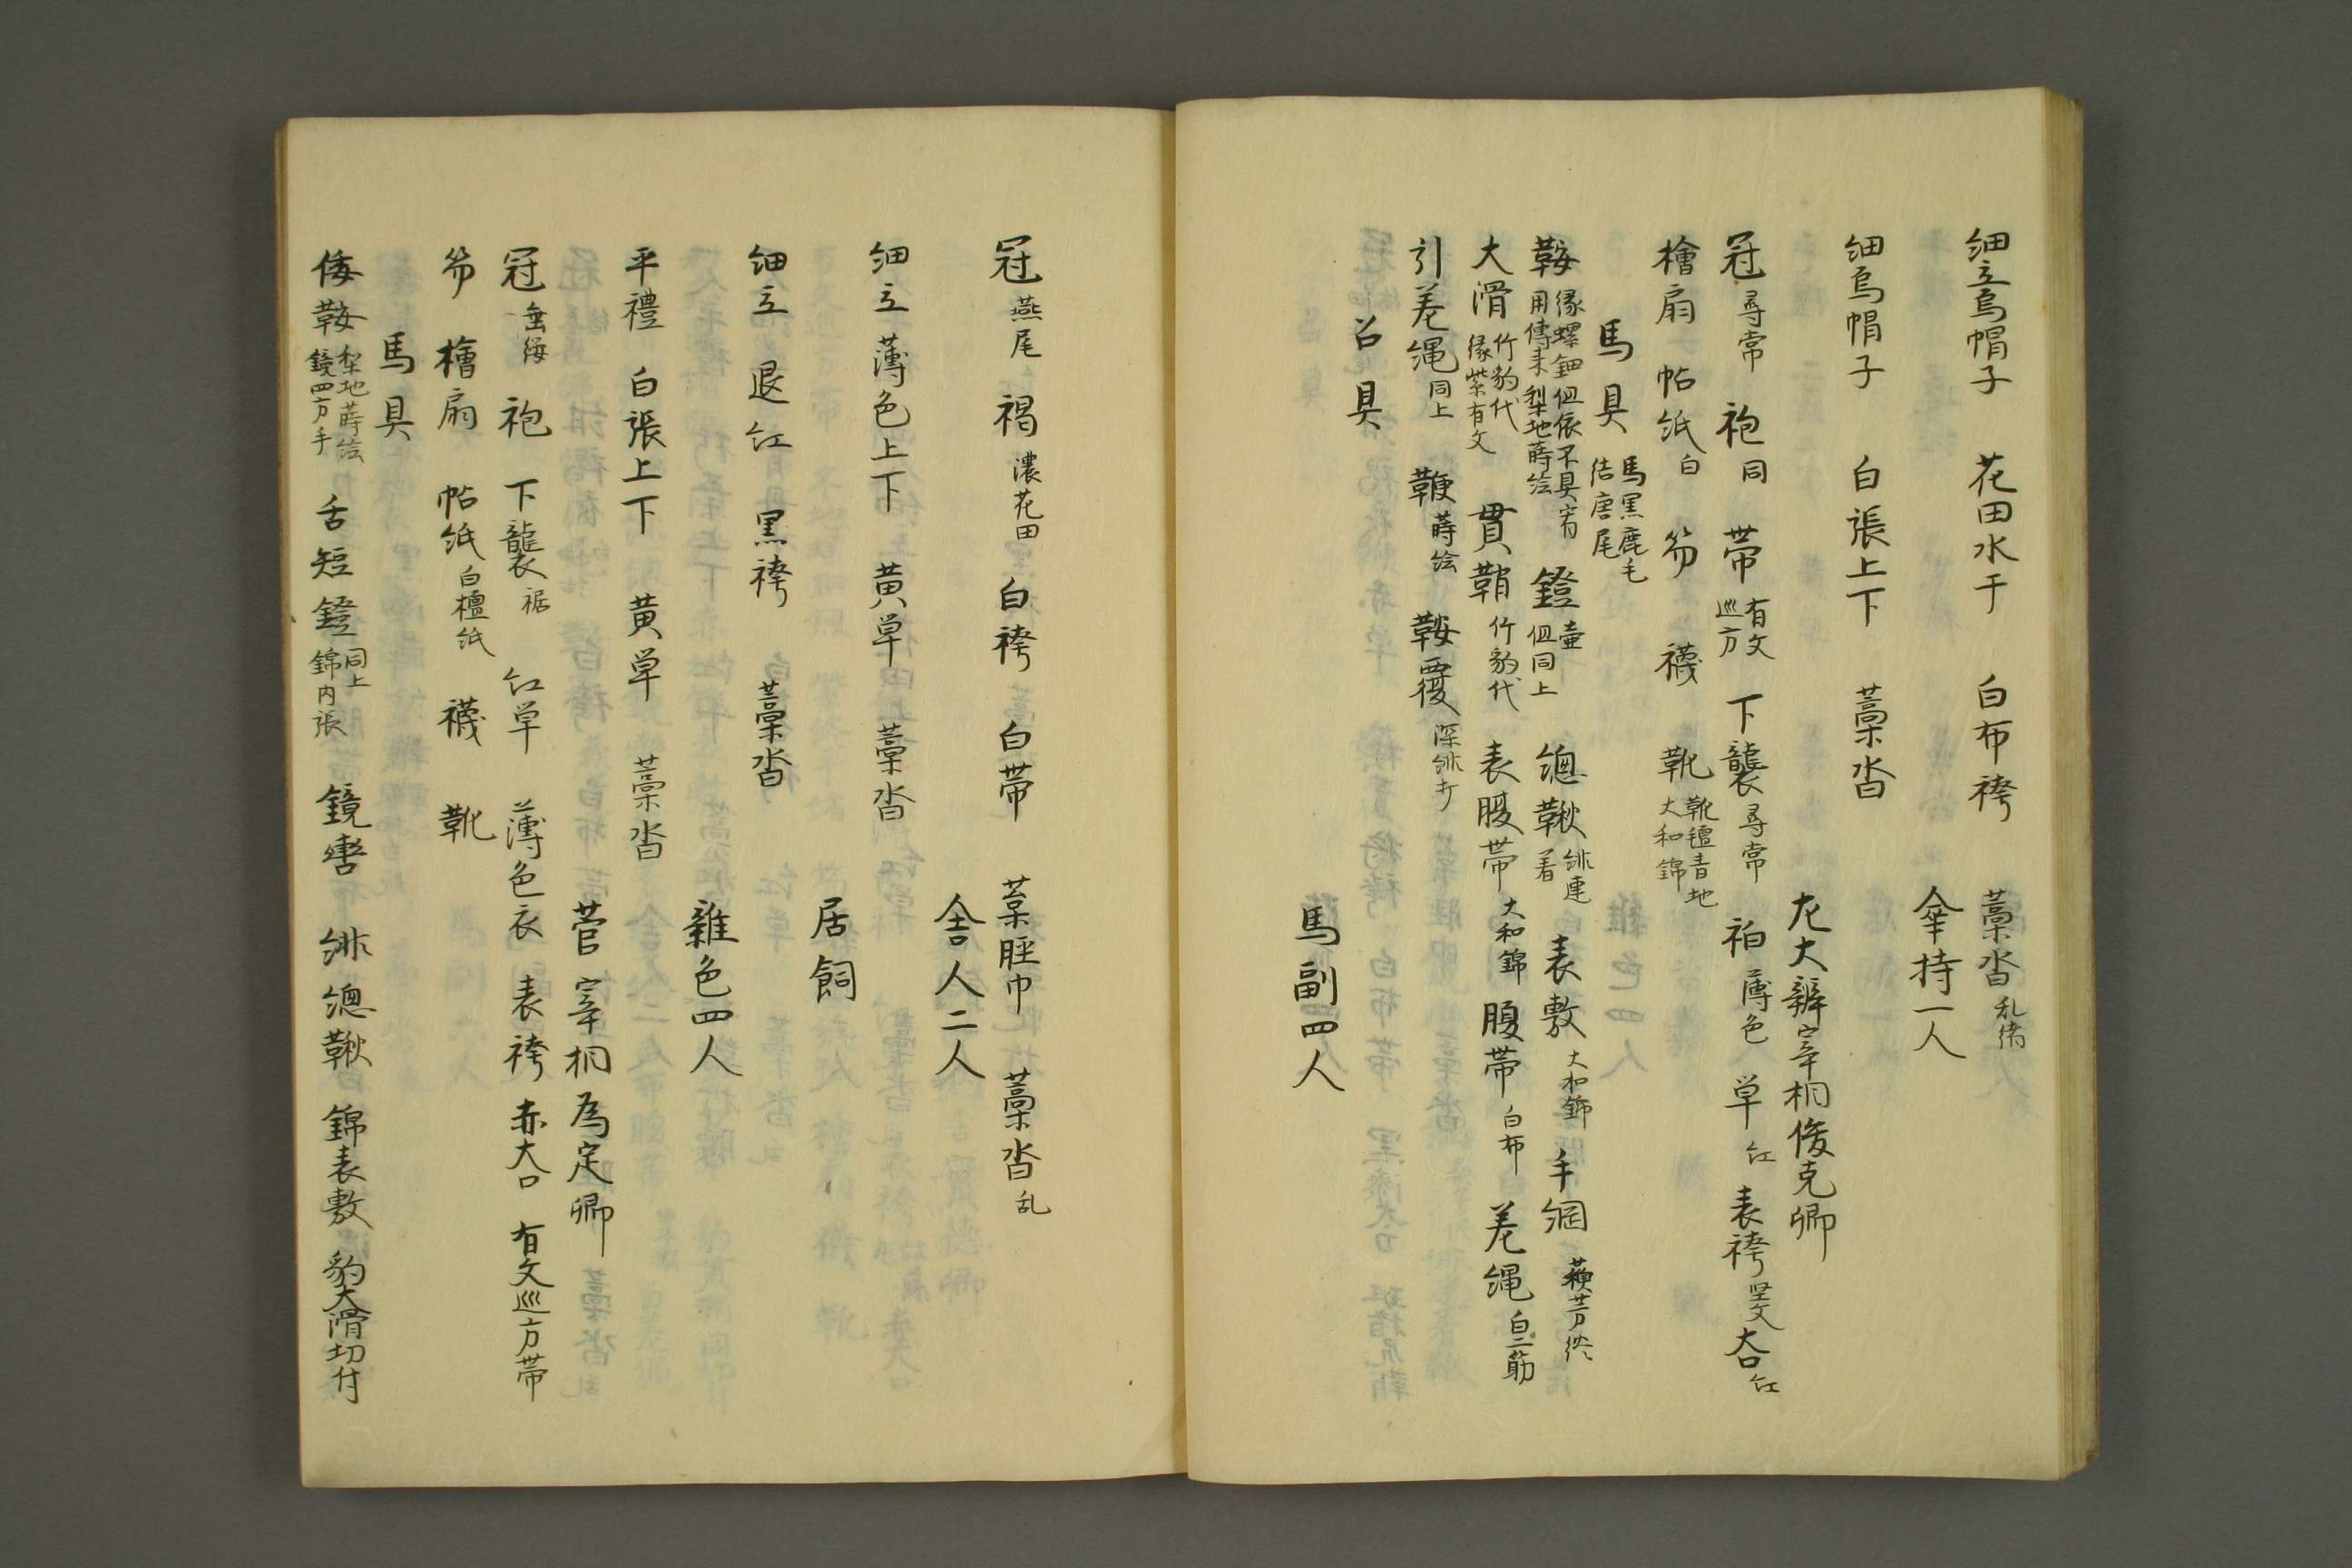 細立烏帽子 花田水干 白布袴 藁沓乱緒
傘持一人
細烏帽子 白張上下 藁沓
左大辨宰相俊克卿
冠尋常 袍同 帯有文巡方 下襲尋常 衵薄色 単紅 表袴堅文 大口紅
檜扇 帖紙白 笏 襪 靴靴氈青地大和錦
馬具馬黒鹿毛結唐尾
鞍縁螺鈿但依不具宥用傳来梨地蒔絵 鐙壷但同上 總鞦緋連着 表敷大和錦 手綱蘇芳
大滑竹豹代縁紫有文 貫鞘竹豹代 表腹帯大和錦 腹帯白布 差縄白二筋
引差縄同上 鞭蒔絵 鞍覆深緋打
召具
馬副四人
冠燕尾 褐濃花田 白袴 白帯 葉脛巾 藁沓乱
舎人二人
細立 薄色上下 黄単 藁沓
居飼
細立 退紅 黒袴 藁沓
雜色四人
平禮 白張上下 黄単 藁沓
菅宰相為定卿
冠垂纓 袍 下襲裾 紅単 薄色衣 表袴 赤大口 有文巡方帯
笏 檜扇 帖紙白檀紙 襪 靴
馬具
倭鞍梨地蒔絵鏡四方手 舌短鐙同上錦内張 鏡轡 緋總鞦 錦表敷 豹大滑切付